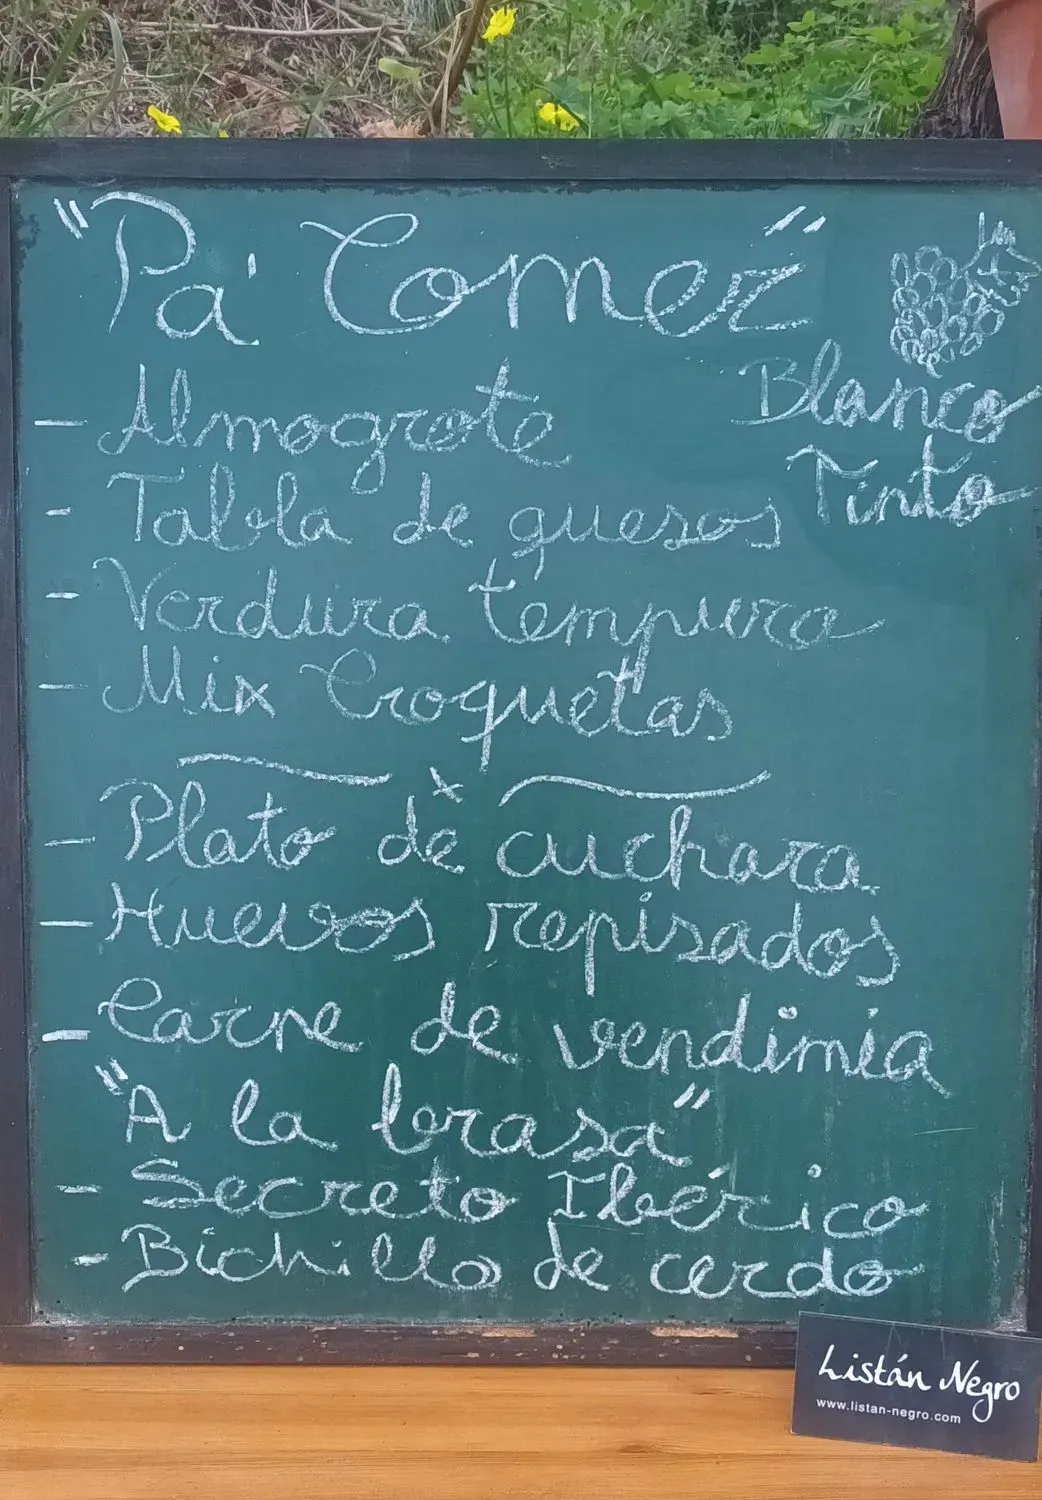 "Pa' Comer"
Blanco
Tinto
- Almogrote
- Tabla de quesos
- Verdura tempura
- Mix Croquetas
- Plato de cuchara
- Huevos repisados
- Carne de vendimia
"A la brasa"
- Secreto Ibérico
- Bichillo de cerdo
Listán Negro
www.listan-negro.com